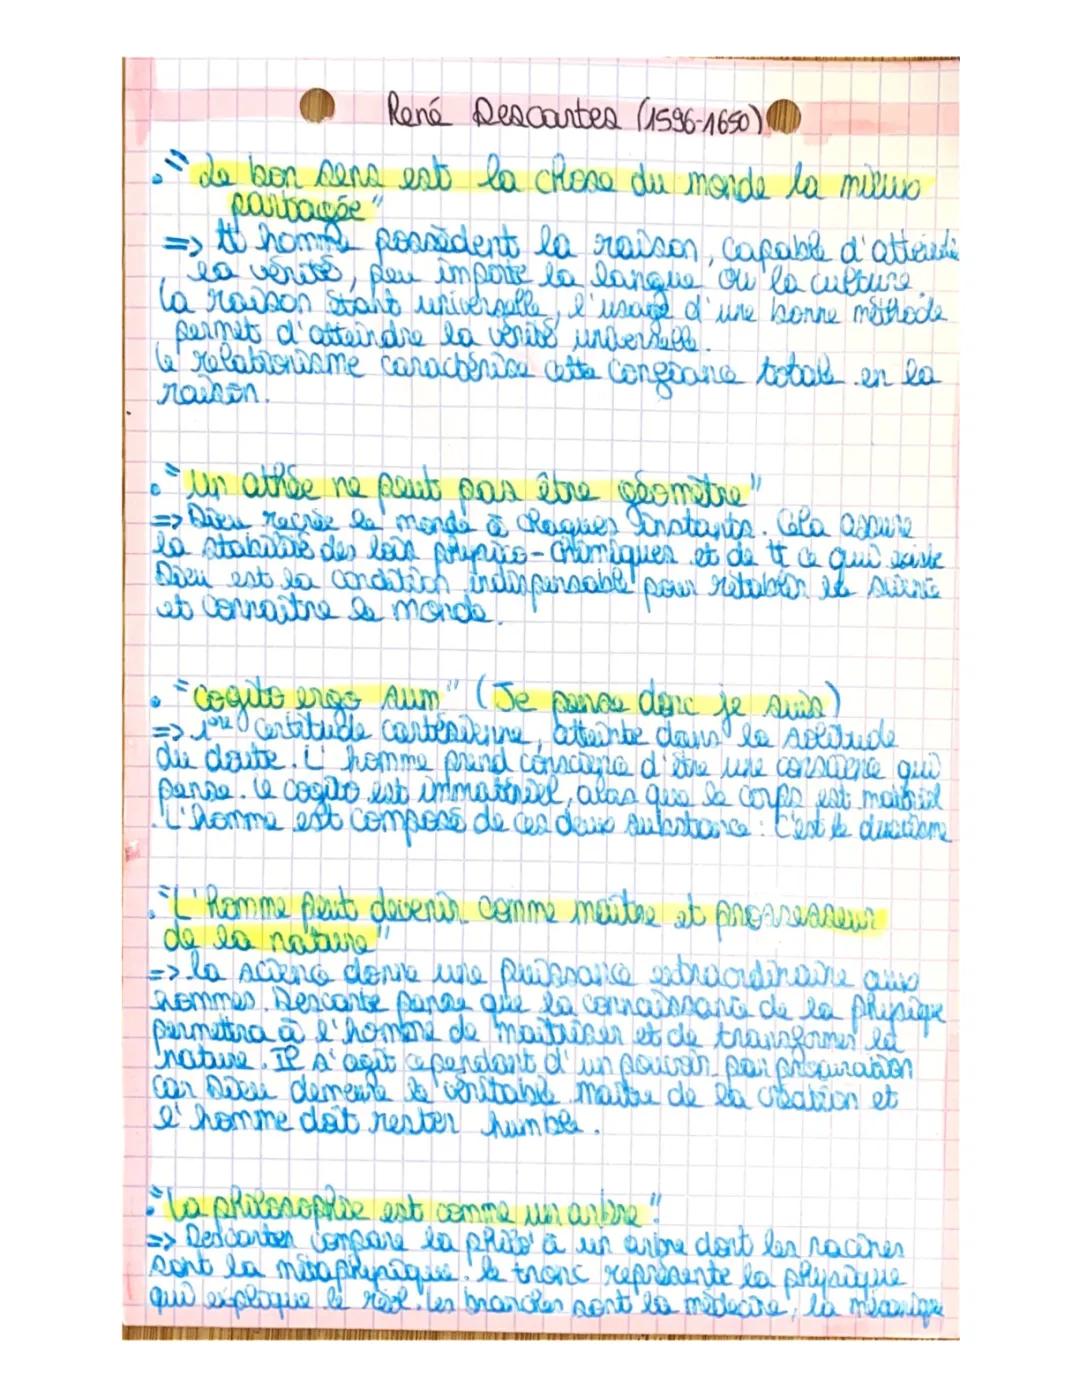 René Descartes (1596-1650)
• "Le bon sens est la chose du monde la mieux
partagée"
=> tt homme possèdent la raison, capable d'atteindre
la vérité, peu importe la langue ou la culture.
La raison étant universelle, l'usage d'une bonne méthode
permet d'atteindre la vérité universelle.
Le relationisme caractérise cette confiance totale en la
raison.
• "Un athée ne peut pas être géomètre"
=> Dieu recrée le monde à chaques instants. Cela assure
la stabilité des lois physico-chimiques et de tt ce qui existe
Dieu est la condition indispensable pour rétablir la science
et connaître le monde.
• "cogito ergo sum" (Je pense donc je suis)
=> 1ère certitude cartésienne, atteinte dans la solitude
du doute. L'homme prend conscience d'être une conscience qui
pense. Le cogito est immatériel, alors que le corps est matériel
. L'homme est composé de ces deux substance : C'est le dualisme
• "L'Homme peut devenir comme maître et prossesseur
de la nature"
=> la science donne une puissance extraordinaire aux
hommes. Descarte pense que la connaissance de la physique
permettra à l'homme de maitriser et de transformer la
nature. Il s'agit cependant d'un pouvoir par procuration
car Dieu demeure le véritable maitre de la création et
l'homme doit rester humble.
• "La philosophie est comme un arbre"
=> Descartes compare la philo à un arbre dont les racines
sont la métaphysique. le tronc représente la physique
qui explique le réel. les branches sont la médecine, la mécanique